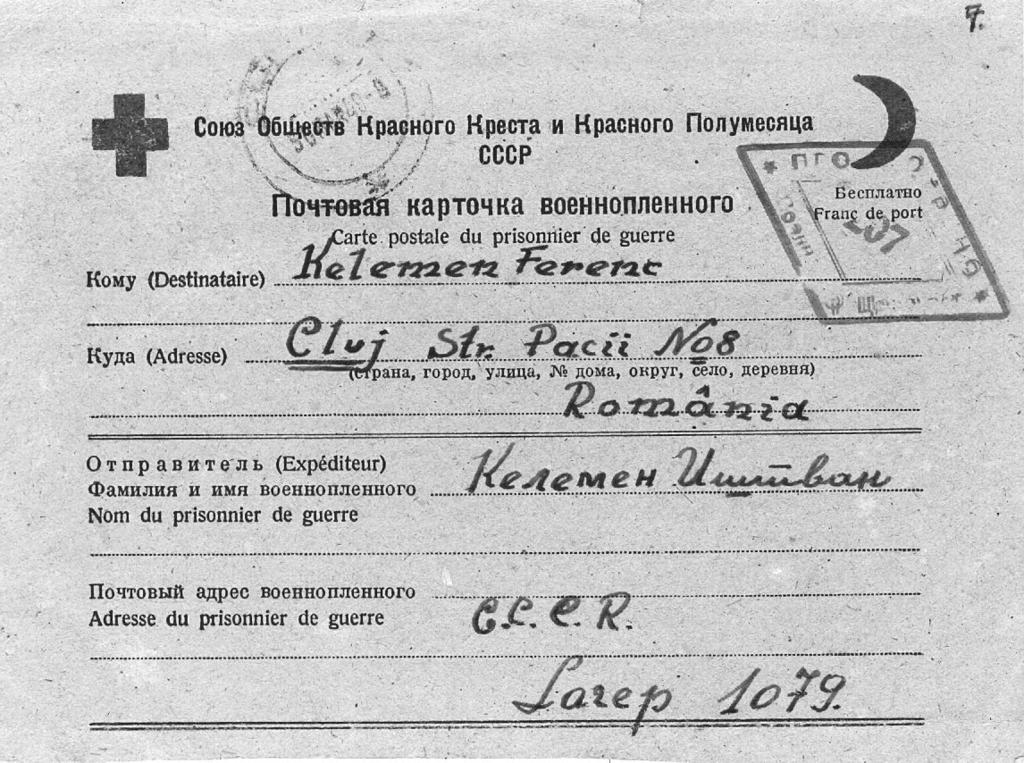 7.
Союз Обществ Красного Креста и Красного Полумесяца
СССР
Почтовая карточка военнопленного
Бесплатно
Carte postale du prisonnier de guerre
Franc de port
Кому (Destinataire) Kelemen Ferenc
Куда (Adresse) Cluj Str. Pacii No8
(страна, город, улица, № дома, округ, село, деревня)
România
Отправитель (Expéditeur)
Фамилия и имя военнопленного Келемен Иштван
Nom du prisonnier de guerre
Почтовый адрес военнопленного
Adresse du prisonnier de guerre C.C.C.R.
Лагер 1079.